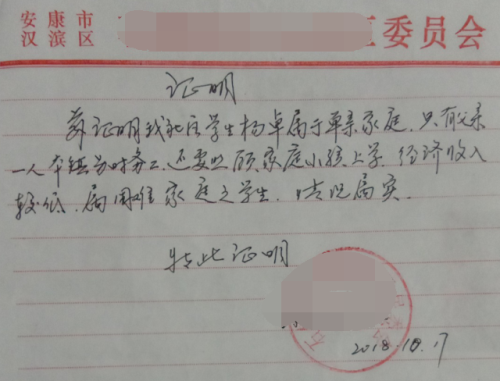 安康市
汉滨区
委员会
证明
兹证明我社区学生杨卓属于单亲家庭，只有父亲
一人在镇务工，还要照顾家庭小孩上学，经济收入
较低，属困难家庭之学生，情况属实。
特此证明
2018.10.17